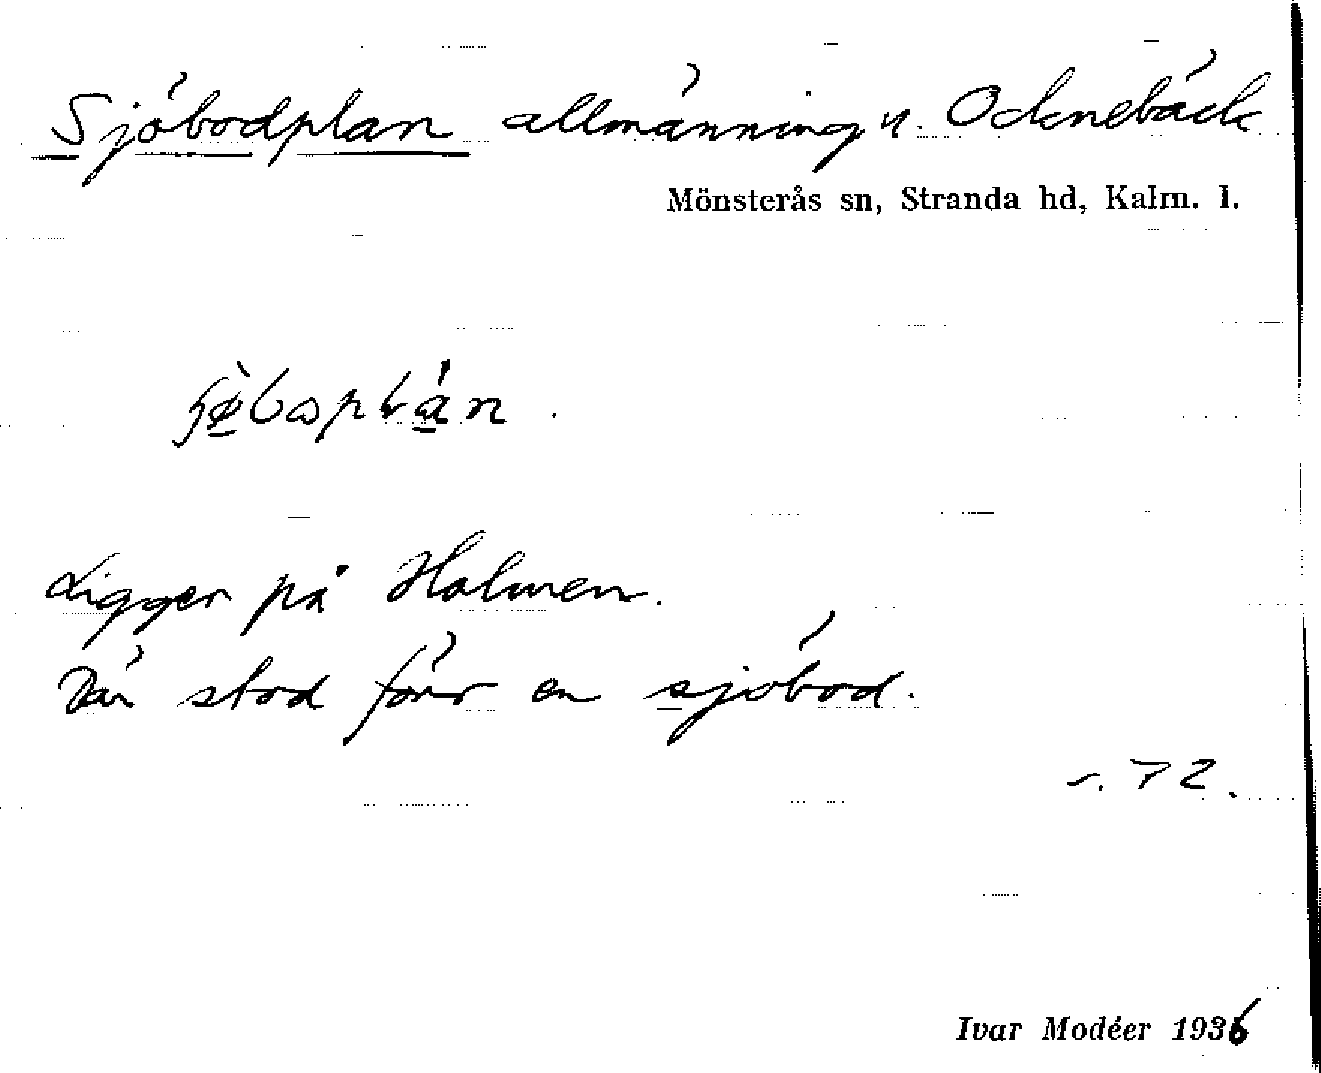 Sjöbodplan allmänning u. Ocknebäck
Mönsterås sn, Stranda hd, Kalm. l.
Ligger på Holmen.
Där stod förr en sjöbod.
s. 72.
Ivar Modéer 1936